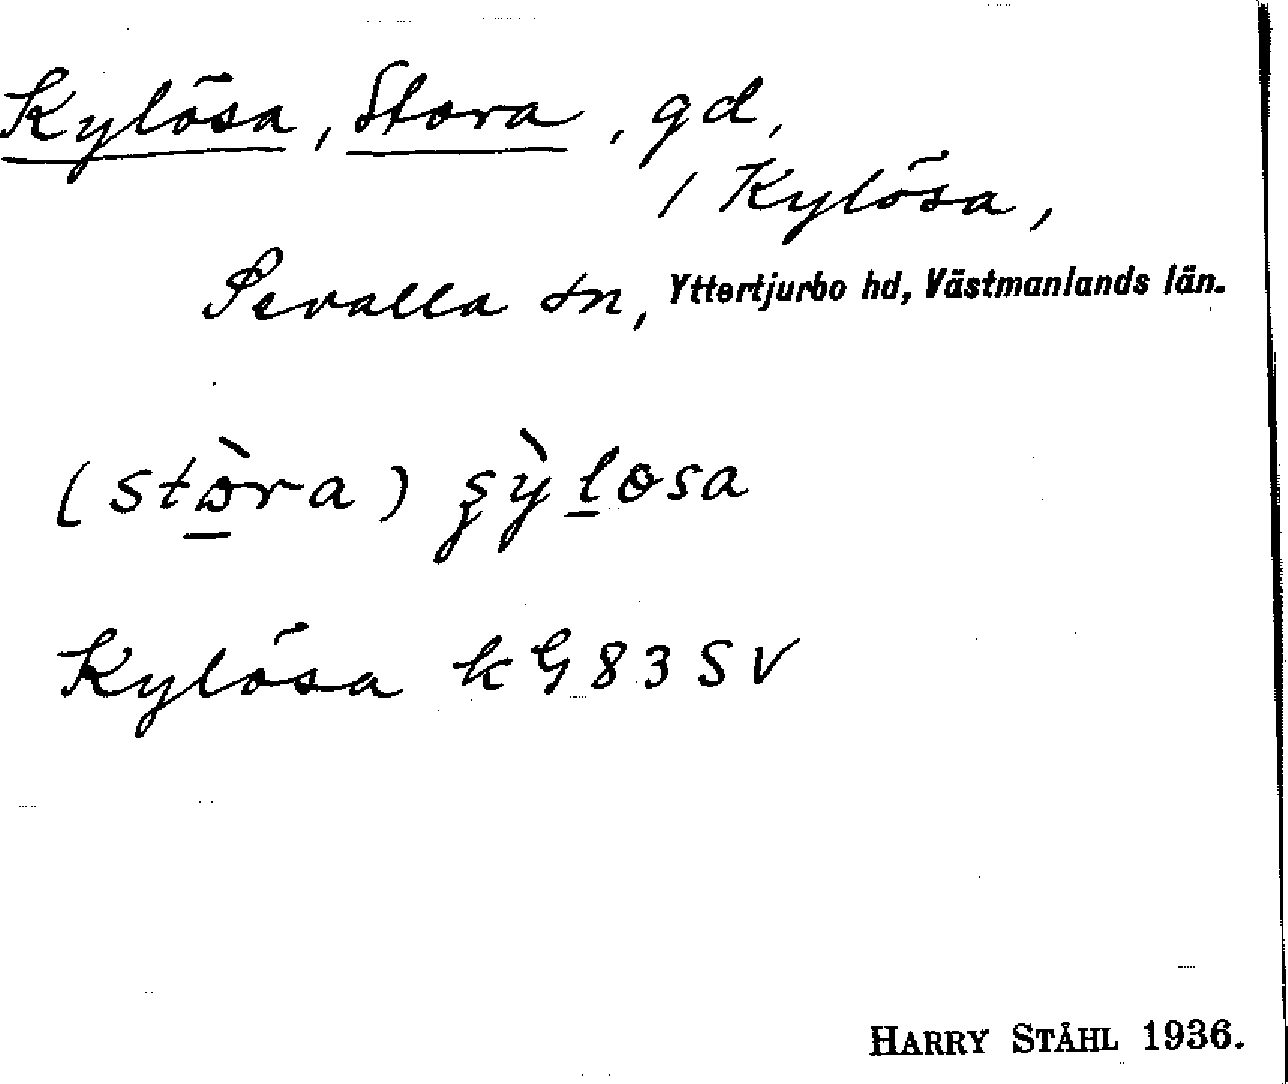 Kylösa, Stora, gd,
/ Kylösa,
Sevalla sn, Yttertjurbo hd, Västmanlands län.
(stòra) 
Kylösa kG 83 SV
HARRY STÅHL 1936.